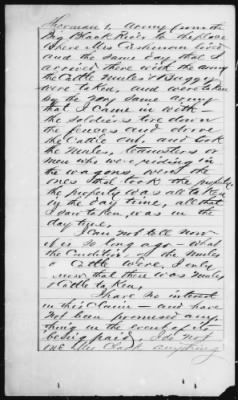 Sherman's Army from the
Big Black River to the place
where Mrs Cushman lived
and the same day that I
arrived there with the army
the Cattle Mules & Buggy
were taken, and were taken
by the very same army
that I came in with.
the Soldiers tore down
the fences and drove
the Cattle out, and took
the Mules, teamsters or
men who were riding in
the wagons were the
ones that took the property
the property was all taken
in the day time, all that
I saw taken, was in the
day time.
I can not tell now
it is so long ago — what
the Condition of the Mules
or Cattle were, I only
know that there was Mules
& Cattle taken.
I have no interest
in this Claim — and have
not been promised any-
thing in the event of its
being paid, I do not
owe Mrs anything